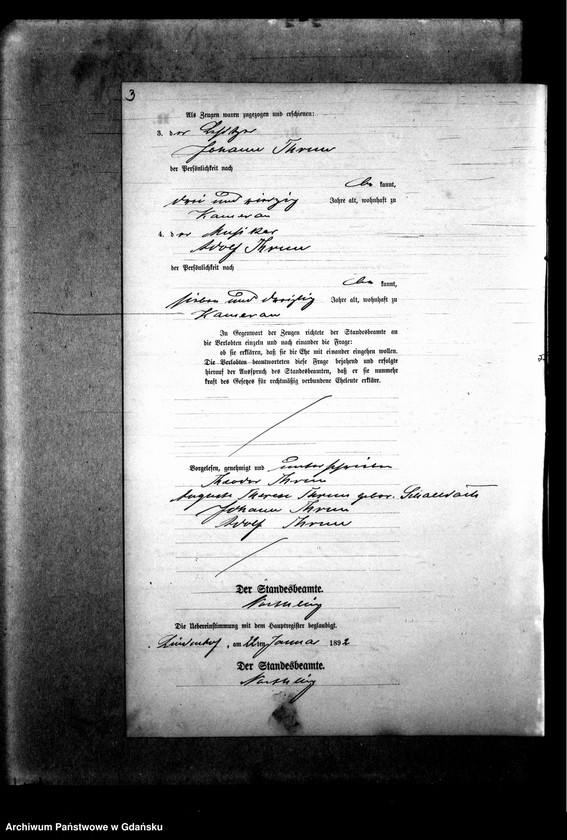 3
Als Zeugen waren zugezogen und erschienen:
3. der Besitzer
Johann Thrun
der Persönlichkeit nach
be kannt,
drei und vierzig Jahre alt, wohnhaft zu
Kameran
4. der Musiker
Adolf Thrun
der Persönlichkeit nach
be kannt,
sieben und dreißig Jahre alt, wohnhaft zu
Kameran
In Gegenwart der Zeugen richtete der Standesbeamte an
die Verlobten einzeln und nach einander die Frage:
ob sie erklären, daß sie die Ehe mit einander eingehen wollen.
Die Verlobten beantworteten diese Frage bejahend und erfolgte
hierauf der Ausspruch des Standesbeamten, daß er sie nunmehr
kraft des Gesetzes für rechtmäßig verbundene Eheleute erkläre.
Vorgelesen, genehmigt und unterschrieben
Theodor Thrun
Auguste Therese Thrun gebor.
Johann Thrun
Adolf Thrun
Der Standesbeamte.
Die Uebereinstimmung mit dem Hauptregister beglaubigt.
, am 22ten Januar 1892
Der Standesbeamte.
Archiwum Państwowe w Gdańsku